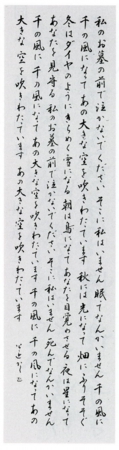 私のお墓の前で泣かないでください そこに私はいません 眠ってなんかいません 千の風に
千の風になって あの大きな空を吹きわたっています 秋には光になって 畑にふりそそぐ
冬はダイヤのように きらめく雪になる 朝は鳥になって あなたを目覚めさせる 夜は星になって
あなたを見守る 私のお墓の前で泣かないでください そこに私はいません 死んでなんかいません
千の風に 千の風になって あの大きな空を吹きわたっています 千の風に 千の風になって あの
大きな空を吹きわたっています あの大きな空を吹きわたっています